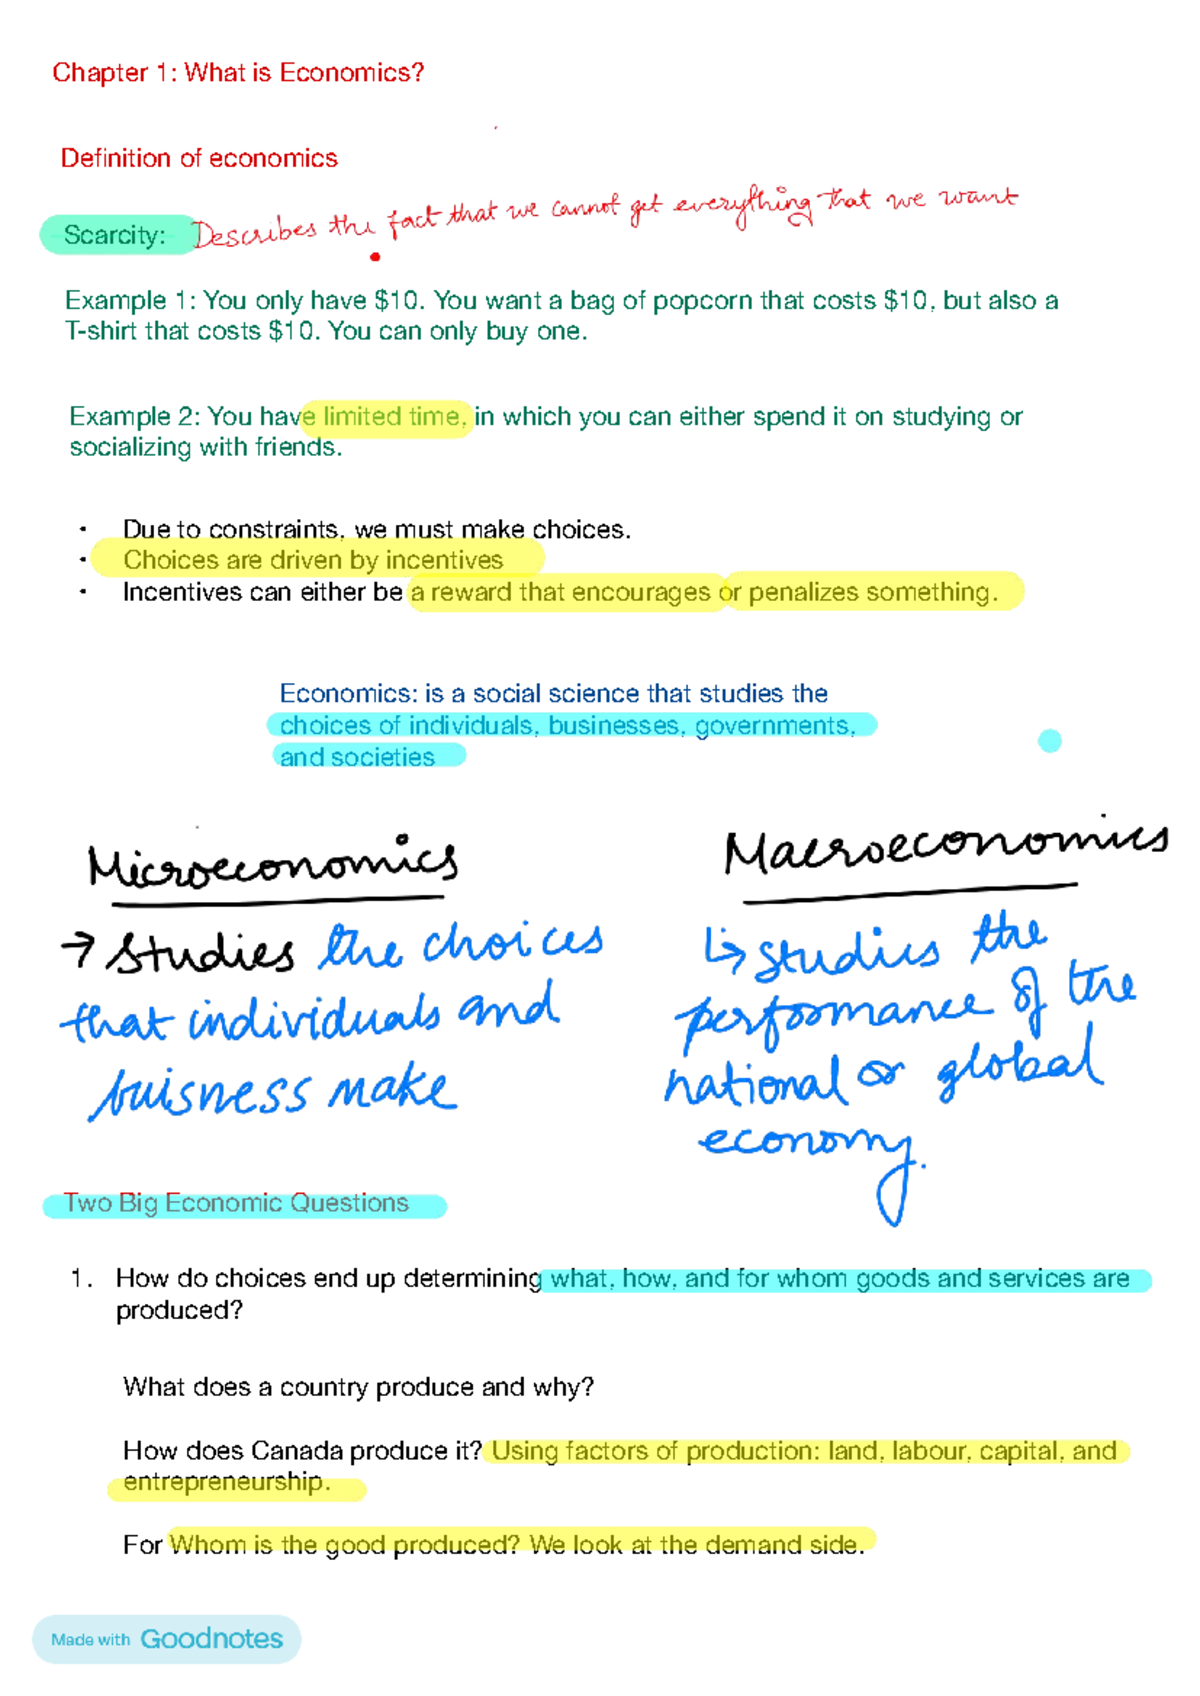 Chapter 1: What is Economics?
Definition of economics
Scarcity: Describes the fact that we cannot get everything that we want
Example 1: You only have $10. You want a bag of popcorn that costs $10, but also a
T-shirt that costs $10. You can only buy one.
Example 2: You have limited time, in which you can either spend it on studying or
socializing with friends.
• Due to constraints, we must make choices.
• Choices are driven by incentives
• Incentives can either be a reward that encourages or penalizes something.
Economics: is a social science that studies the
choices of individuals, businesses, governments,
and societies
Microeconomics
→ Studies the choices
that individuals and
buisness make
Macroeconomics
↳ studies the
performance of the
national or global
economy.
Two Big Economic Questions
1. How do choices end up determining what, how, and for whom goods and services are
produced?
What does a country produce and why?
How does Canada produce it? Using factors of production: land, labour, capital, and
entrepreneurship.
For Whom is the good produced? We look at the demand side.
Made with Goodnotes